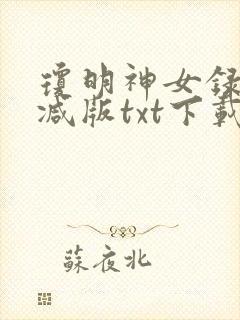 瓊明神女録
减版txt下載
蘇夜北